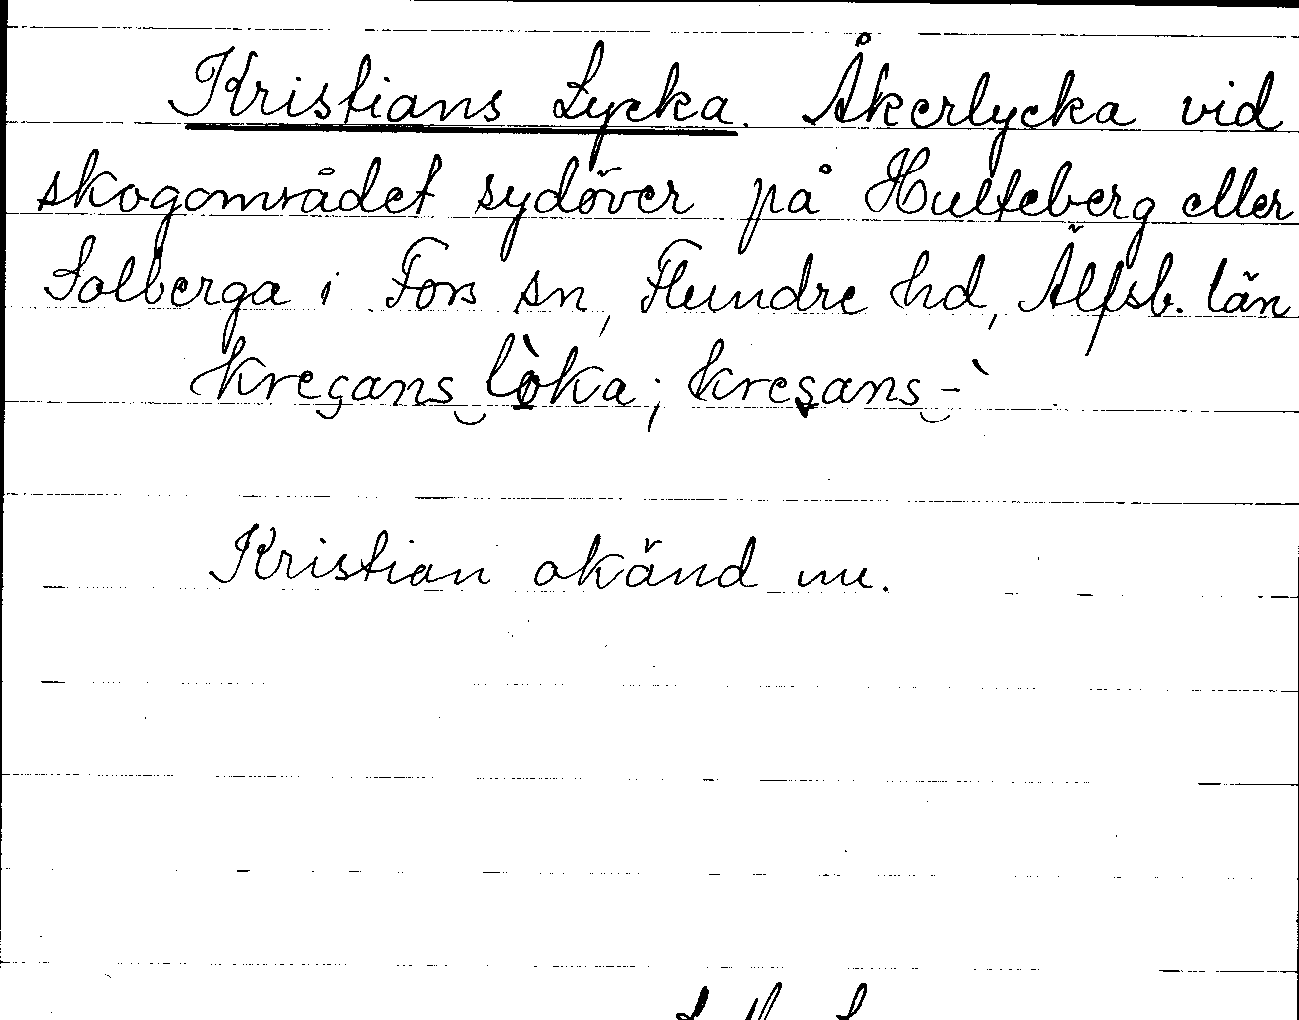 Kristians Lycka. Åkerlycka vid
skogområdet sydöver på Hulteberg eller
Solberga i Fors sn, Flundre hd, Älfsb. län
kreşans löka; kreşans -`
Kristian okänd nu.